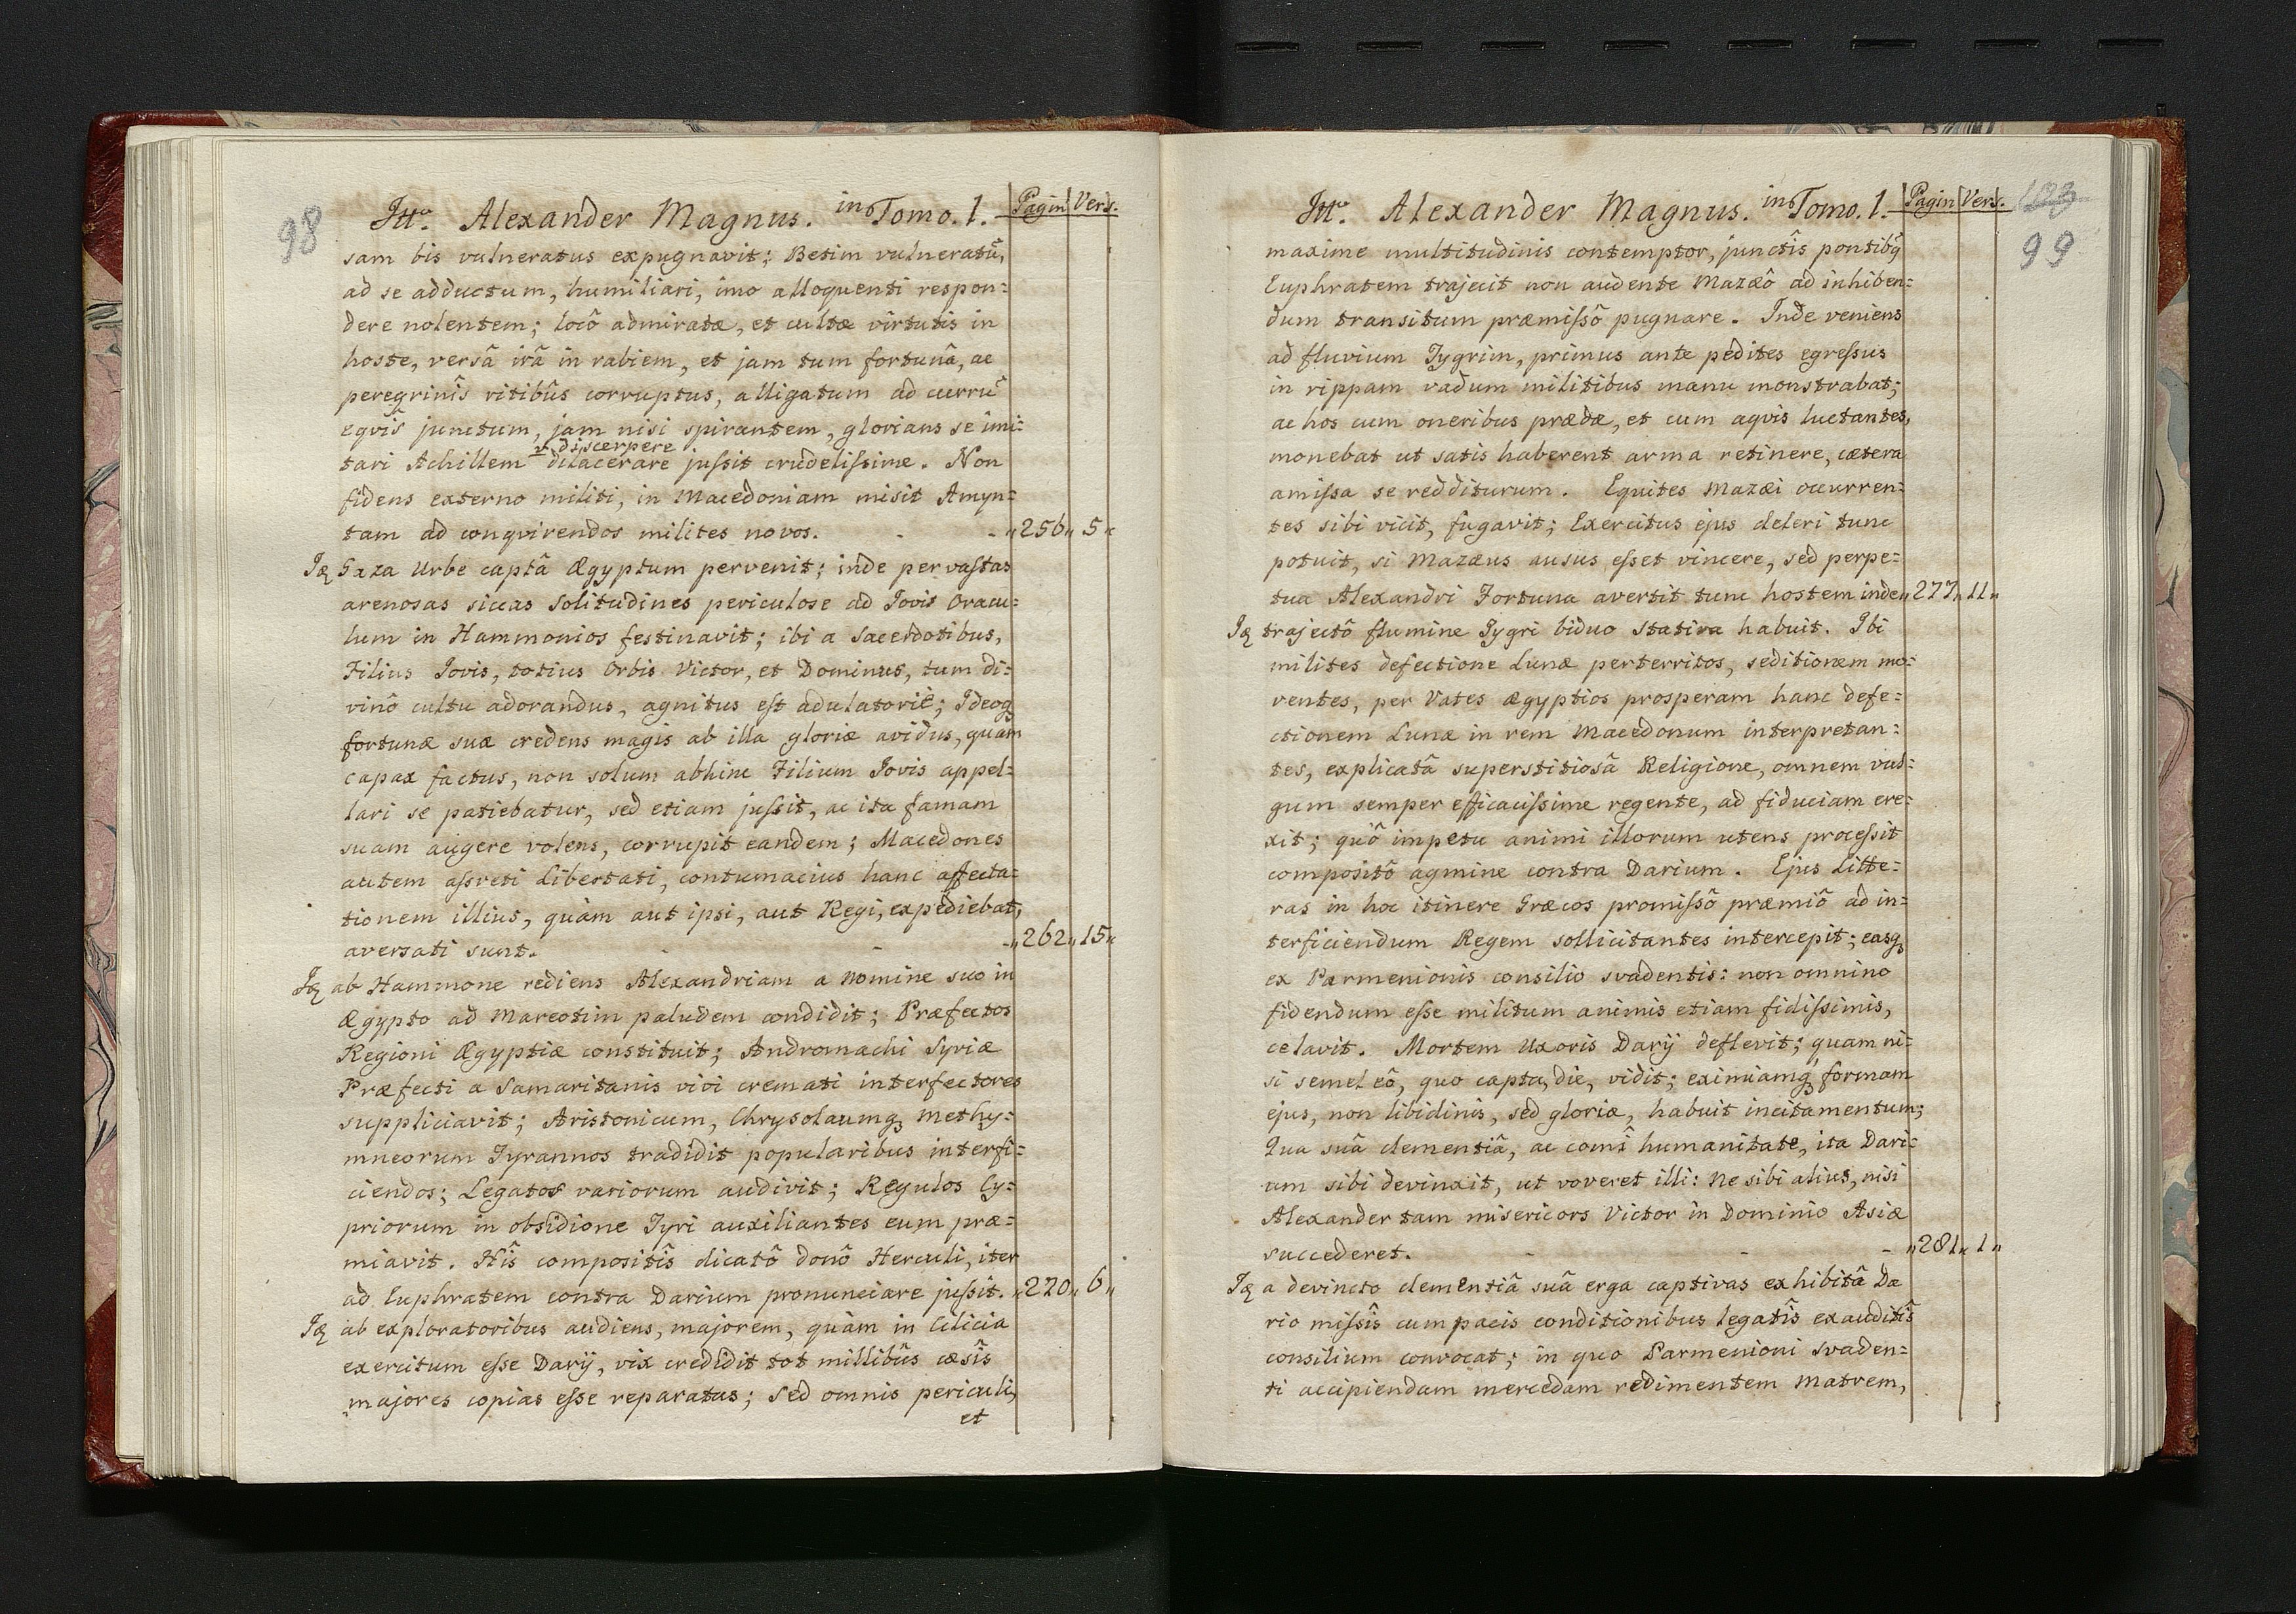 98
Itt. Alexander Magnus. in Tomo. 1. Pagin Vers.
sam bis vulneratus expugnavit; Betim vulneratũ,
ad se adductum, humiliari, imo alloquenti respon:
dere nolentem; locô admiratæ, et cultæ virtutis in
hoste, versâ irâ in rabiem, et jam tum fortunâ, ac
peregrinîs ritibûs corruptus, alligatum ad currũ
eqvîs junctum, jam nisi spirantem, glorians se imi:
v discerpere
tari Achillem dilacerare jussit crudelissime. Non
fidens externo militi, in Macedoniam misit Amyn:
tam ad conqvirendos milites novos. - - „256„ 5„
Iq Gaza Urbe captâ Ægyptum pervenit; inde per vastas
arenosas siccas Solitudines periculose ad Jovis Oracu:
lum in Hammonios festinavit; ibi a Sacerdotibus,
Filius Jovis, totius Orbis Victor, et Dominus, tum di:
vinô cultu adorandus, agnitus est adulatoriè; Ideoq
fortunæ suæ credens magis ab illa gloriæ avidus, quàm
capax factus, non solum abhinc Filium Jovis appel:
lari se patiebatur, sed etiam jussit, ac ita famam
suam augere volens, corrupit eandem; Macedones
autem assveti Libertati, contumacius hanc affecta:
tionem illius, quàm aut ipsi, aut Regi, expediebat,
aversati sunt. - - - „262„15„
Iq ab Hammone rediens Alexandriam a Nomine suo in
Ægypto ad Mareotim paludem condidit; Præfectos
Regioni Ægyptiæ constituit; Andromachi Syriæ
Præfecti a Samaritanis vivi cremati interfectores
suppliciavit; Aristonicum, Chrysolaumq Methy:
mneorum Tyrannos tradidit popularibus interfi:
ciendos; Legatos variorum audivit; Regulos Cy:
priorum in obsidione Tyri auxiliantes eum præ:
miavit. Hîs compositîs dicatô donô Herculi, iter
ad Euphratem contra Darium pronunciare jussit. „220„ 6„
Iq ab exploratoribus audiens, majorem, quàm in Cilicia
exercitum esse Darÿ, vix credidit tot millibûs cæsîs
majores copias esse reparatas; sed omnis periculi,
et
Itt. Alexander Magnus. in Tomo. 1. Pagin Vers.
103
99
maxime multitudinis contemptor, junctîs pontibq
Euphratem trajecit non audente Mazæô ad inhiben:
dum transitum præmissô pugnare. Inde veniens
ad fluvium Tygrim, primus ante pedites egressus
in rippam vadum militibus manu monstrabat;
ac hos cum oneribus prædæ, et cum aqvis luctantes,
monebat ut satis haberent arma retinere, cætera
amissa se redditurum. Equites Mazæi occurren:
tes sibi vicit, fugavit; Exercitus ejus deleri tunc
potuit, si Mazæus ausus esset vincere, sed perpe:
tua Alexandri Fortuna avertit tunc hostem inde „277„11„
Iq trajectô flumine Tygri biduo stativa habuit. Ibi
milites defectione Lunæ perterritos, seditionem mo:
ventes, per Vates Ægyptios prosperam hanc defe:
ctionem Lunæ in rem Macedonum interpretan:
tes, explicatâ superstitiosâ Religione, omnem vul:
gum semper efficacissime regente, ad fiduciam ere:
xit; quô impetu animi illorum utens processit
compositô agmine contra Darium. Ejus Litte:
ras in hoc itinere Græcos promissô præmiô ad in:
terficiendum Regem sollicitantes intercepit; easq
ex Parmenionis consilio svadentis: non omnino
fidendum esse militum animis etiam fidissimis,
celavit. Mortem Uxoris Darÿ deflevit; quam ni:
si semel eô, quo capta, die, vidit; eximiamq formam
ejus, non libidinis, sed gloriæ, habuit incitamentum;
Qua suâ clementiâ, ac comi humanitate, ita Dari:
um sibi devinxit, ut voveret illi: Ne sibi alius, nisi
Alexander tam misericors Victor in Dominio Asiæ
succederet. - - - „281„ 1„
Iq a devincto clementiâ suâ erga captivas exhibitâ Da
rio missîs cum pacis conditionibus legatîs exauditîs
consilium convocat; in quo Parmenioni svaden:
ti accipiendam mercedam redimentem Matrem,